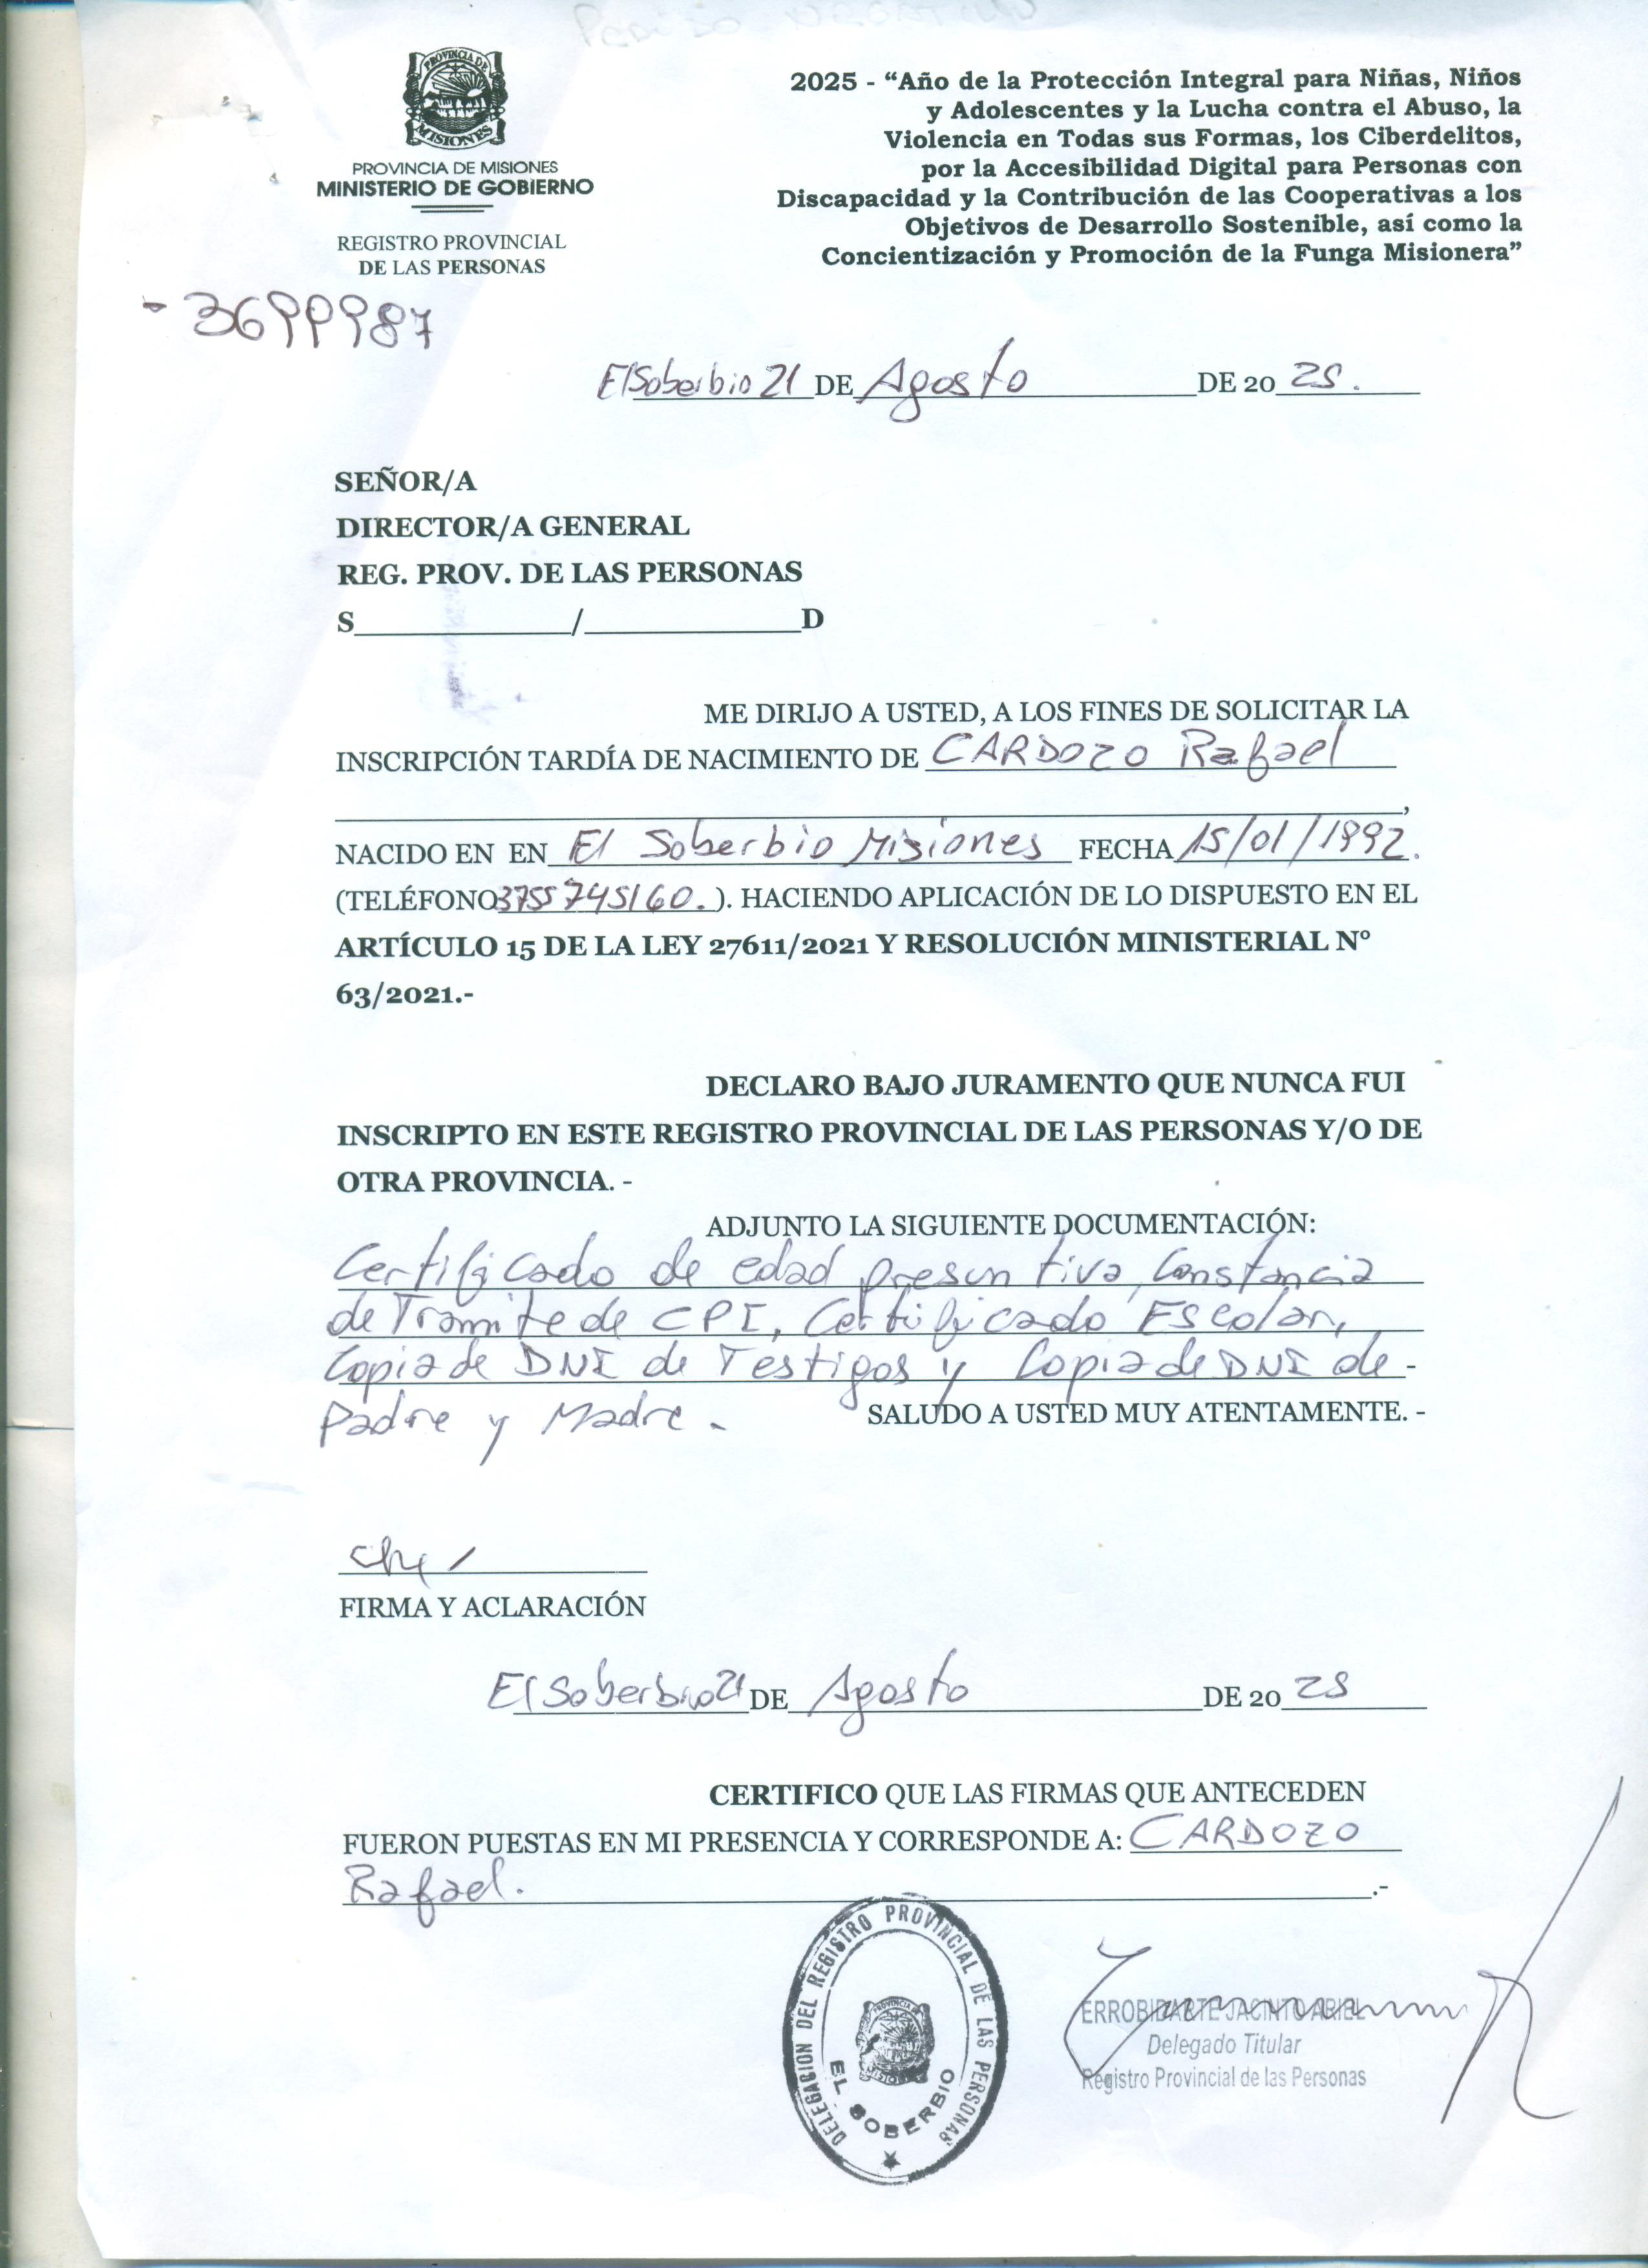 PROVINCIA DE
MISIONES
PROVINCIA DE MISIONES
MINISTERIO DE GOBIERNO
REGISTRO PROVINCIAL
DE LAS PERSONAS
2025 - “Año de la Protección Integral para Niñas, Niños
y Adolescentes y la Lucha contra el Abuso, la
Violencia en Todas sus Formas, los Ciberdelitos,
por la Accesibilidad Digital para Personas con
Discapacidad y la Contribución de las Cooperativas a los
Objetivos de Desarrollo Sostenible, así como la
Concientización y Promoción de la Funga Misionera”
- 3699987
El Soberbio 21 DE Agosto DE 20 25.
SEÑOR/A
DIRECTOR/A GENERAL
REG. PROV. DE LAS PERSONAS
S/D
ME DIRIJO A USTED, A LOS FINES DE SOLICITAR LA
INSCRIPCIÓN TARDÍA DE NACIMIENTO DE CARDOZO Rafael
,
NACIDO EN EN El Soberbio Misiones FECHA 15/01/1992.
(TELÉFONO 3755 745160. ). HACIENDO APLICACIÓN DE LO DISPUESTO EN EL
ARTÍCULO 15 DE LA LEY 27611/2021 Y RESOLUCIÓN MINISTERIAL N°
63/2021.-
DECLARO BAJO JURAMENTO QUE NUNCA FUI
INSCRIPTO EN ESTE REGISTRO PROVINCIAL DE LAS PERSONAS Y/O DE
OTRA PROVINCIA. -
ADJUNTO LA SIGUIENTE DOCUMENTACIÓN:
Certificado de edad presuntiva, Constancia
de Tramite de CPI, Certificado Escolar,
Copia de DNI de Testigos y Copia de DNI de -
Padre y Madre. SALUDO A USTED MUY ATENTAMENTE. -
FIRMA Y ACLARACIÓN
El Soberbio 21 DE Agosto DE 20 25
CERTIFICO QUE LAS FIRMAS QUE ANTECEDEN
FUERON PUESTAS EN MI PRESENCIA Y CORRESPONDE A: CARDOZO
Rafael. .-
DELEGACION DEL REGISTRO PROVINCIAL DE LAS PERSONAS
EL SOBERBIO
ERROBIDARTE JACINTO ARIEL
Delegado Titular
Registro Provincial de las Personas